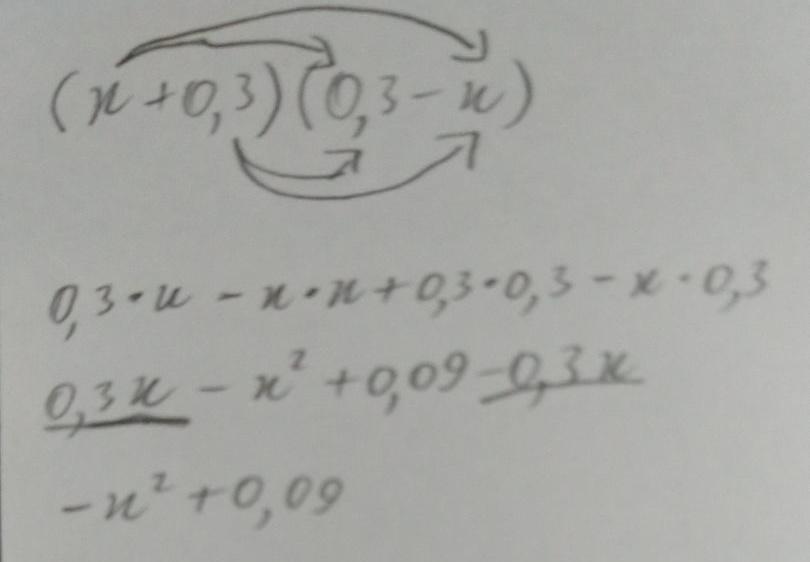 (x+0,3)(0,3-x)
0,3·x - x·x+0,3·0,3-x·0,3
0,3x - x²+0,09-0,3x
-x²+0,09